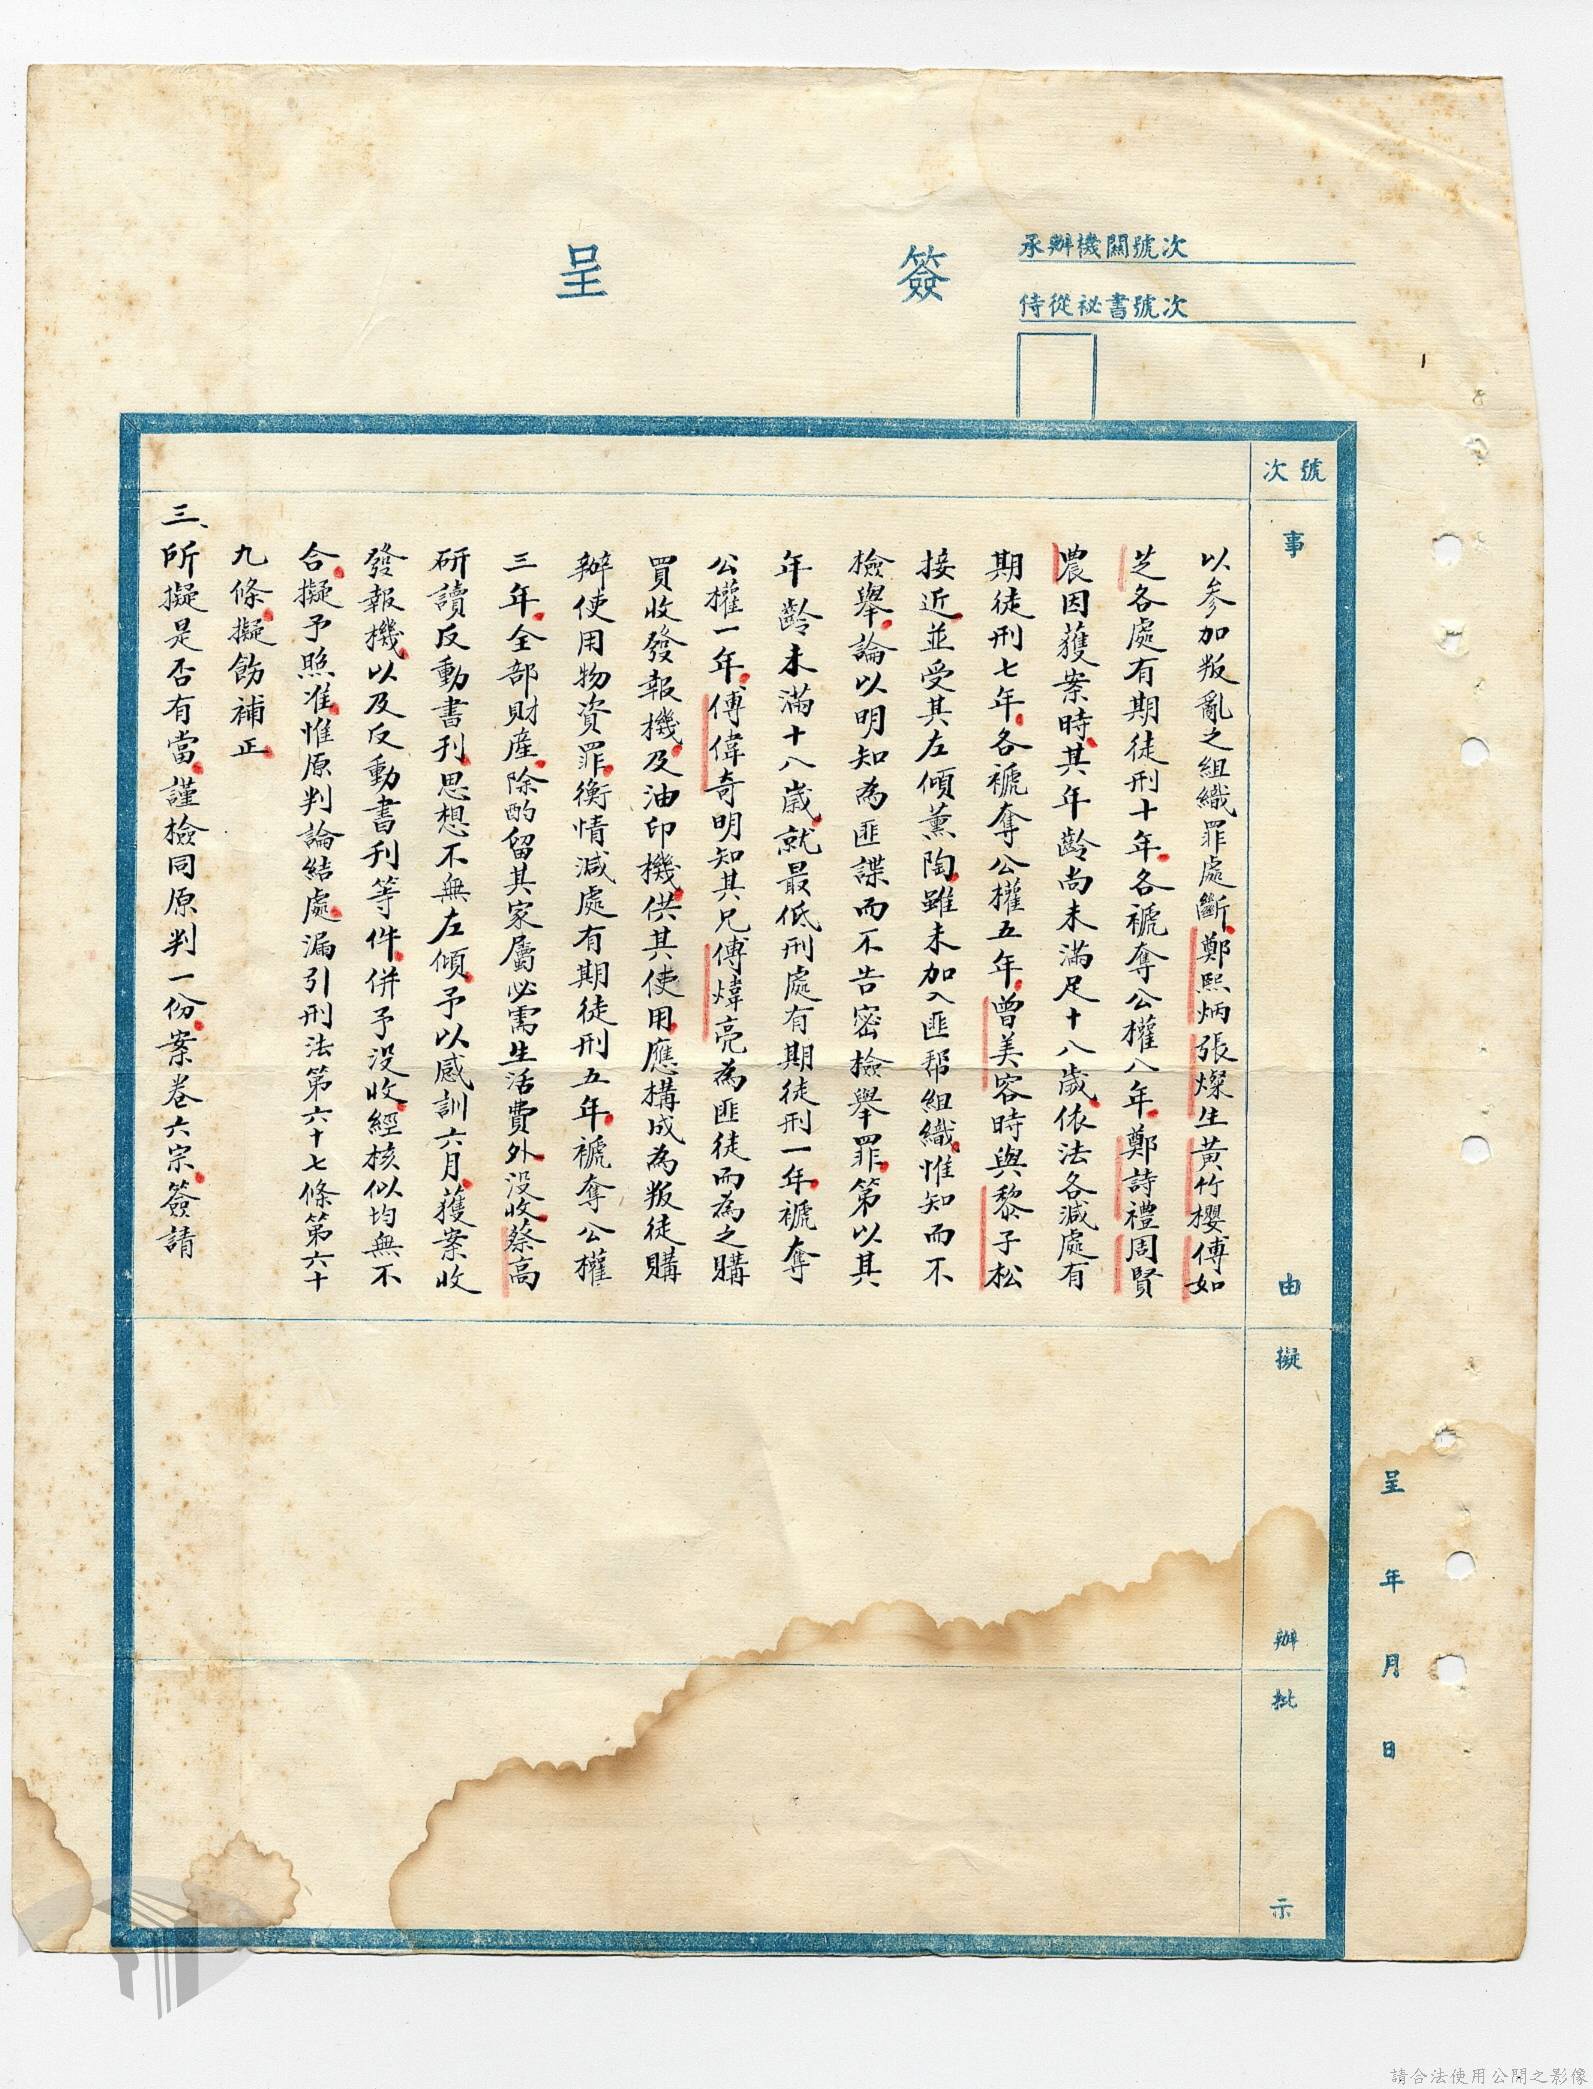 簽呈
承辦機關號次
侍從祕書號次
號次
事由
擬辦
批示
呈 年 月 日
以參加叛亂之組織罪處斷鄭熙炳張燦生黃竹櫻傅如
芝各處有期徒刑十年各褫奪公權八年鄭詩禮周賢
農因獲案時其年齡尚未滿足十八歲依法各減處有
期徒刑七年各褫奪公權五年曾美容時與黎子松
接近並受其左傾薰陶雖未加入匪幫組織惟知而不
檢舉論以明知為匪諜而不告密檢舉罪第以其
年齡未滿十八歲就最低刑處有期徒刑一年褫奪
公權一年傅偉奇明知其兄傅煒亮為匪徒而為之購
買收發報機及油印機供其使用應構成為叛徒購
辦使用物資罪衡情減處有期徒刑五年褫奪公權
三年全部財產除酌留其家屬必需生活費外沒收蔡高
研讀反動書刊思想不無左傾予以感訓六月獲案收
發報機以及反動書刊等件併予沒收經核似均無不
合擬予照准惟原判論結處漏引刑法第六十七條第六十
九條擬飭補正
三、所擬是否有當謹檢同原判一份案卷六宗簽請
請合法使用公開之影像